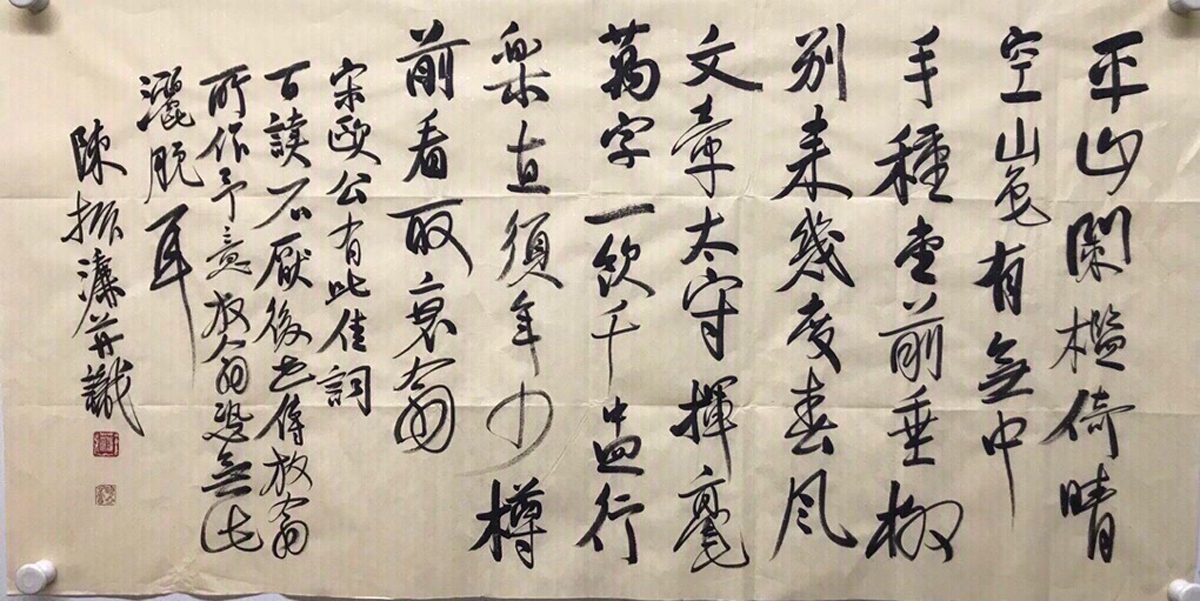 平山闌檻倚晴
空山色有無中
手種堂前垂柳
别来幾度春风
文章太守揮毫
萬字一飲千盅行
樂直須年少樽
前看取衰翁
宋歐公有此佳詞
百讀不厭後世傳放翁
所作予意放翁恐無此
灑脱耳
陳振濂并識